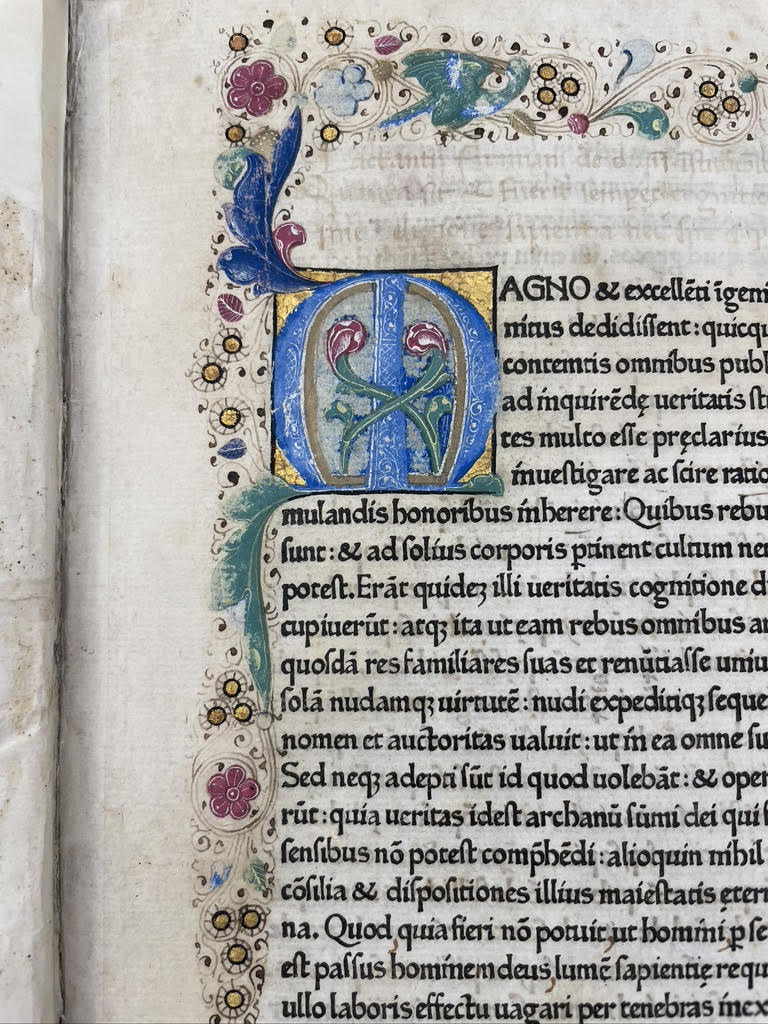 MAGNO & excellēti īgeni
nitus dedidissent: quicqu
contemtis omnibus publ
ad inquirēdę ueritatis stu
tes multo esse pręclarius
inuestigare ac scire ratio
mulandis honoribus inherere: Quibus rebu
sunt: & ad solius corporis ꝑtinent cultum nem
potest. Erāt quidez illi ueritatis cognitione d
cupiuerūt: atqꝫ ita ut eam rebus omnibus an
quosdā res familiares suas et renūtiasse uniu
solā nudamqꝫ uirtutē: nudi expeditiqꝫ seque
nomen et auctoritas ualuit: ut in ea omne su
Sed neqꝫ adepti sūt id quod uolebāt: & oper
rūt: quia ueritas idest archanū sūmi dei qui f
sensibus nō potest comp̄hēdi: alioquin nihil
cōsilia & dispositiones illius maiestatis ętern
na. Quod quia fieri nō potuit ut homini ꝑ se
est passus hominem deus lumē sapientię requ
ullo laboris effectu uagari per tenebras inex